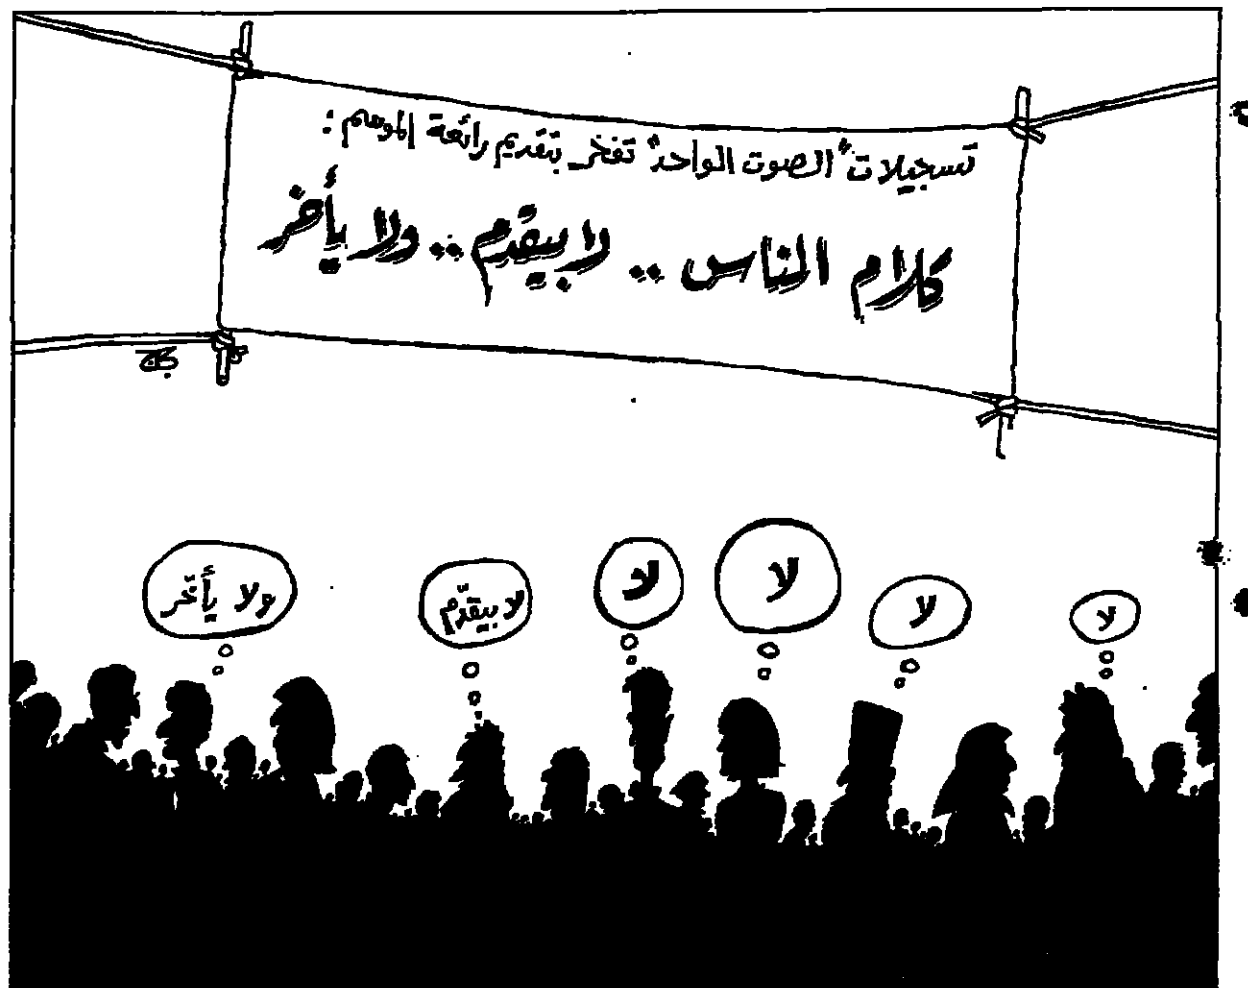 تسجيلات "الصوت الواحد" تفخر بتقديم رائعة الموسم :
كلام الناس .. لا بيقدم .. ولا يأخر
لا
لا
لا
لا
لا بيقدّم
ولا يأخّر